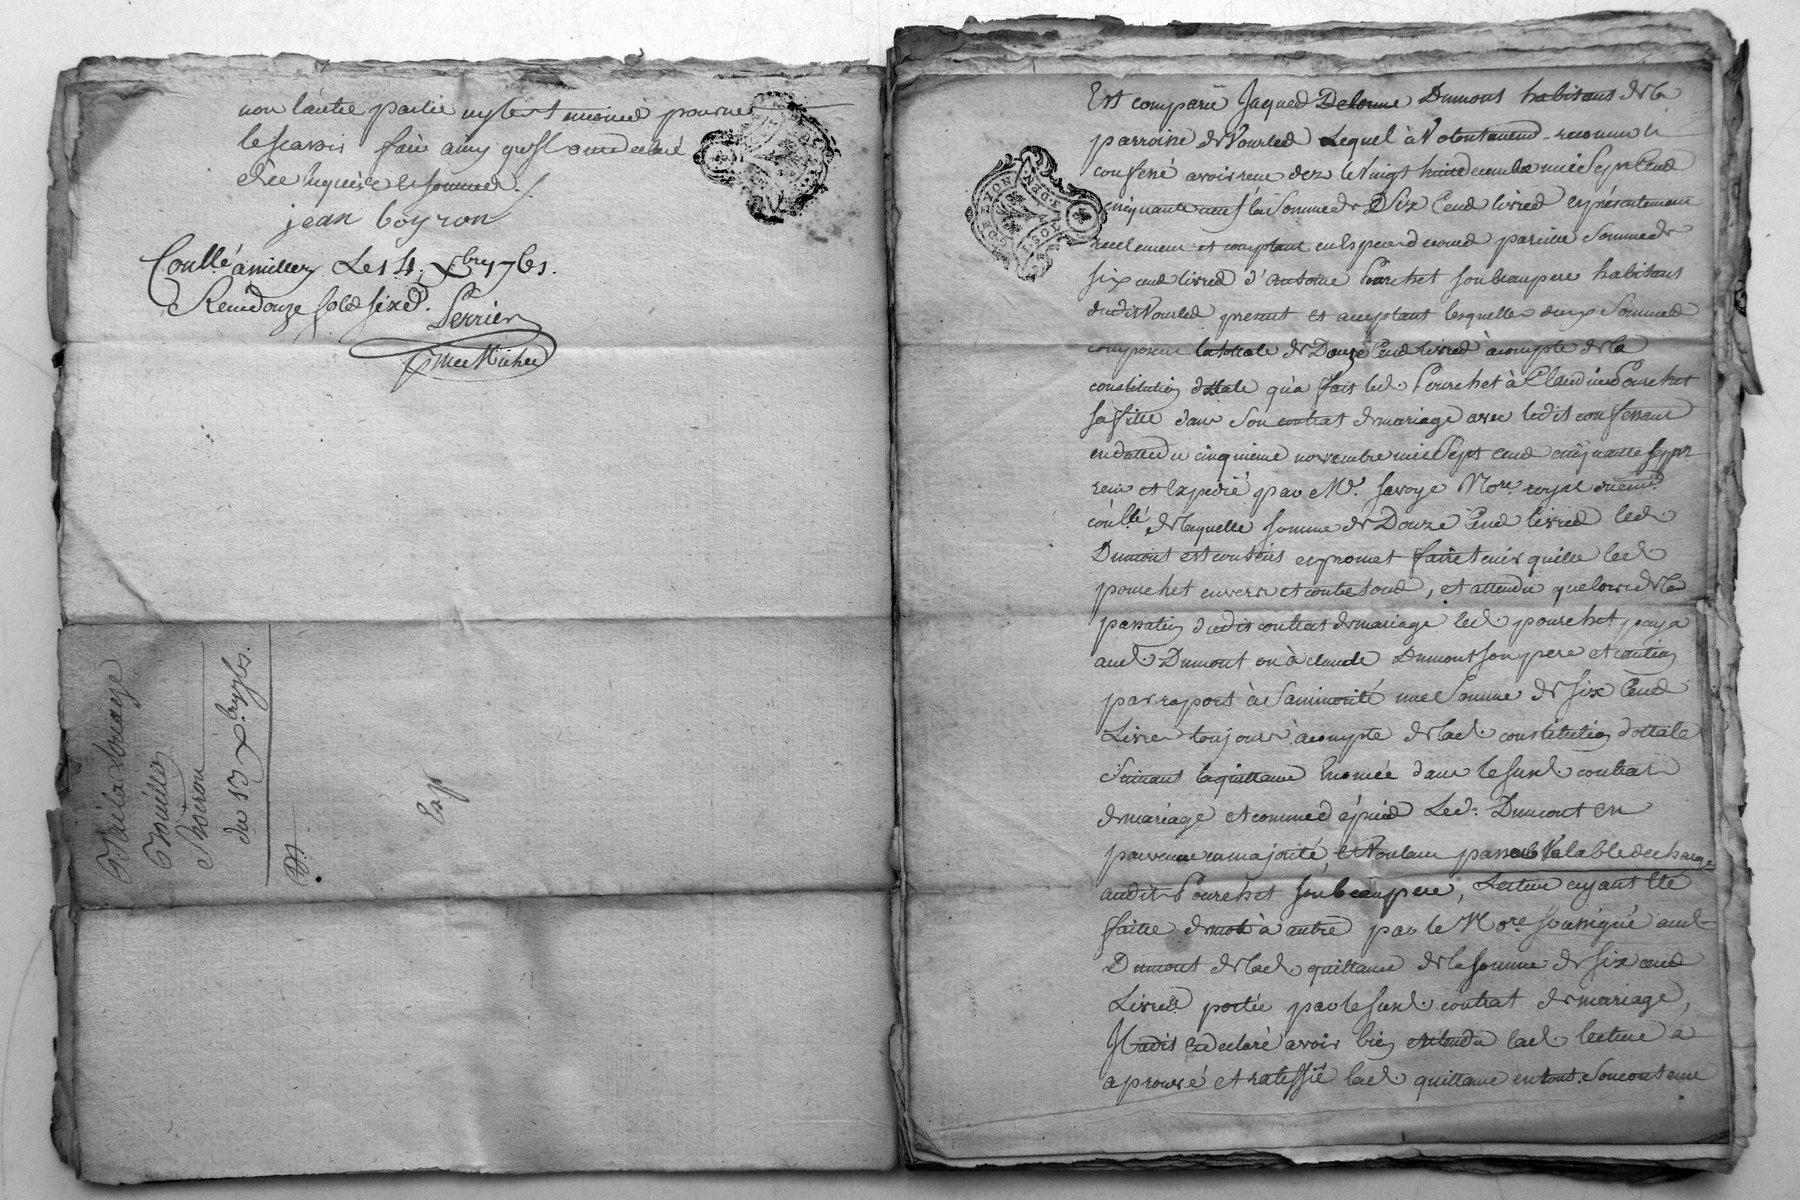 non lautre partie
le scavoir faire ainsy declaré
de ce enquis et sommed.
jean boyron
Conllé a millery Le 14. Xbre 1761.
Receu douze sols six d.
Perrier
Bail a
du 13 Xbre 1761.
Exp
G. DE LYON
Est comparu Jaques Delorme Dumont habitant de la
parroisse de Vourles Lequel a Volontairemt reconnu et
confessé avoir receu dez le Vingt huit mil Sept Cend
cinquante neuf la Somme de Six Cend livres et présentement
reelement et comptant en Espece pareille Somme de
six cend livres d'antoine Pourchet son beaupere habitant
dudit Vourles present et aceptant lesquelles deux Sommes
composent la totale de Douze Cend livres à compte de la
constitution dottale qu'a fait led. Pourchet à Claudine Pourchet
sa fille dans Son contrat de mariage avec ledit confessant
en datte du cinquieme novembre mil Sept cend cinquante sept
receu et Expedié par Me. Savoye Nore. royal
conllé de laquelle somme de Douze Cend livres led.
Dumont est content et promet faire tenir quitte led.
pourchet envers et contre tous, et attendu que lors de la
passation dudit contrat de mariage led. pourchet paya
aud. Dumont ou à claude Dumont son pere et caution
par raport à Sa minorité une Somme de six Cend
Livres toujours acompte de lad. constitution dottale
Suivant la quittance enoncée dans le susd. contrat
de mariage et comme Led. Dumont en
parvenu en majorité, et Voulant passer Valable decharge
audit Pourchet son beaupere, Lecture ayant Eté
faitte de mot à autre par le Nore. soussigné aud.
Dumont de lad. quittance de la somme de six cend
Livres portée par le susd. contrat de mariage,
Il a dit et declaré avoir bien entendu lad. lecture a
aprouvé et ratiffié lad. quittance en tout Son contenu